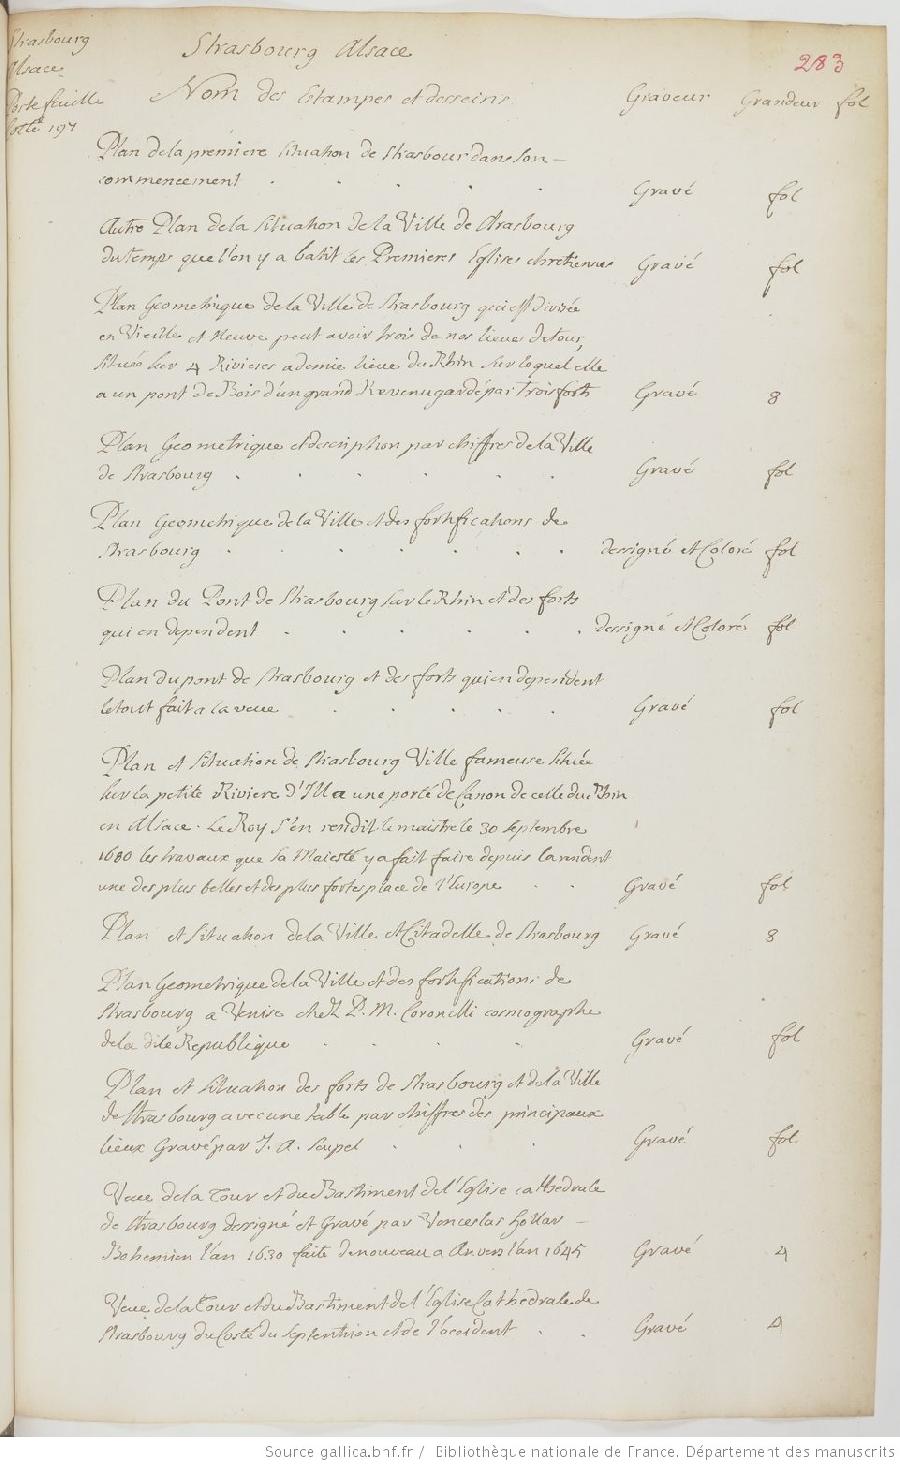 Strasbourg
Alsace
Portefeuille
Cotté 197
Strasbourg Alsace
283
Nom des Estampes et desseins Graveur Grandeur fol
Plan de la premiere situation de Strasbour dans son
commencement . . . . . Gravé fol
Autre Plan de la situation de la Ville de Strasbourg
du temps que l'on y a batit les Premieres Eglises chretiennes Gravé fol
Plan Geometrique de la Ville de Strasbourg qui est Divisée
en Vieille et Neuve peut avoir trois de nos lieues de tour,
située sur 4 Rivieres a demie lieue du Rhin sur lequel elle
a un pont de Bois d'un grand Revenu gardé par trois forts Gravé 8
Plan Geometrique et description par chiffres de la Ville
de Strasbourg . . . . . . Gravé fol
Plan Geometrique de la Ville et des fortifications de
Strasbourg . . . . . . . dessigné et Coloré fol
Plan du Pont de Strasbourg sur le Rhin et des forts
qui en dependent . . . . . . dessigné et Coloré fol
Plan du pont de Strasbourg et des forts qui en dependent
le tout fait a la veue . . . . Gravé fol
Plan et situation de Strasbourg Ville fameuse située
sur la petite Riviere d'Ill a une porté de Canon de celle du Rhin
en Alsace. Le Roy s'en rendit le maistre le 30 septembre
1680 les travaux que sa Majesté y a fait faire depuis la rendent
une des plus belles et des plus fortes place de l'Europe . . Gravé fol
Plan et situation de la Ville et Citadelle de Strasbourg Gravé 8
Plan Geometrique de la Ville et des fortifications de
Strasbourg a Venise chez P. M. Coronelli cosmographe
de la dite Republique . . . . Gravé fol
Plan et situation des forts de Strasbourg et de la Ville
de Strasbourg avec une table par chiffres des principaux
lieux Gravé par J. A. Seupel . . . Gravé fol
Veue de la Tour et du Bastiment de l'Eglise cathedrale
de Strasbourg dessigné et Gravé par Venceslas Hollar
Bohemien l'an 1630 faite de nouveau a Anvers l'an 1645 Gravé 4
Veue de la Tour et du Bastiment de l'Eglise Cathedrale de
Strasbourg du Costé du septentrion et de l'occident . . Gravé 4
Source gallica.bnf.fr / Bibliothèque nationale de France. Département des manuscrits